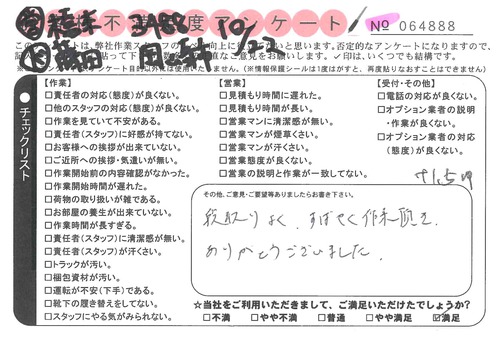 不 度アンケート № 064888
□責任者の対応(態度)が良くない。
□他のスタッフの対応(態度)が良くない。
□作業を見ていて不安がある。
□責任者(スタッフ)に好感が持てない。
□お客様への挨拶が出来ていない。
□ご近所への挨拶・気遣いが無い。
□作業開始前の内容確認がなかった。
□作業開始時間が遅れた。
□荷物の取り扱いが雑である。
□お部屋の養生が出来ていない。
□作業時間が長すぎる。
□責任者(スタッフ)に清潔感が無い。
□責任者(スタッフ)が汗くさい。
□トラックが汚い。
□梱包資材が汚い。
□運転が不安(下手)である。
□靴下の履き替えをしてない。
□スタッフにやる気がみられない。
【作業】
チェックリスト
【営業】
□見積もり時間に遅れた。
□見積もり時間が長い。
□営業マンに清潔感が無い。
□営業マンが煙草くさい。
□営業マンが汗くさい。
□営業態度が良くない。
□営業の説明と作業が一致してない。
【受付・その他】
□電話の対応が良くない。
□オプション業者の説明
・作業が良くない。
□オプション業者の対応
(態度)が良くない。
その他、ご意見・ご要望等ありましたらお書き下さい。
段取りよく、すばやく作業頂き
ありがとうございました。
☆当社をご利用いただきまして、ご満足いただけたでしょうか?
□不満 □やや不満 □普通 □やや満足 ☑満足